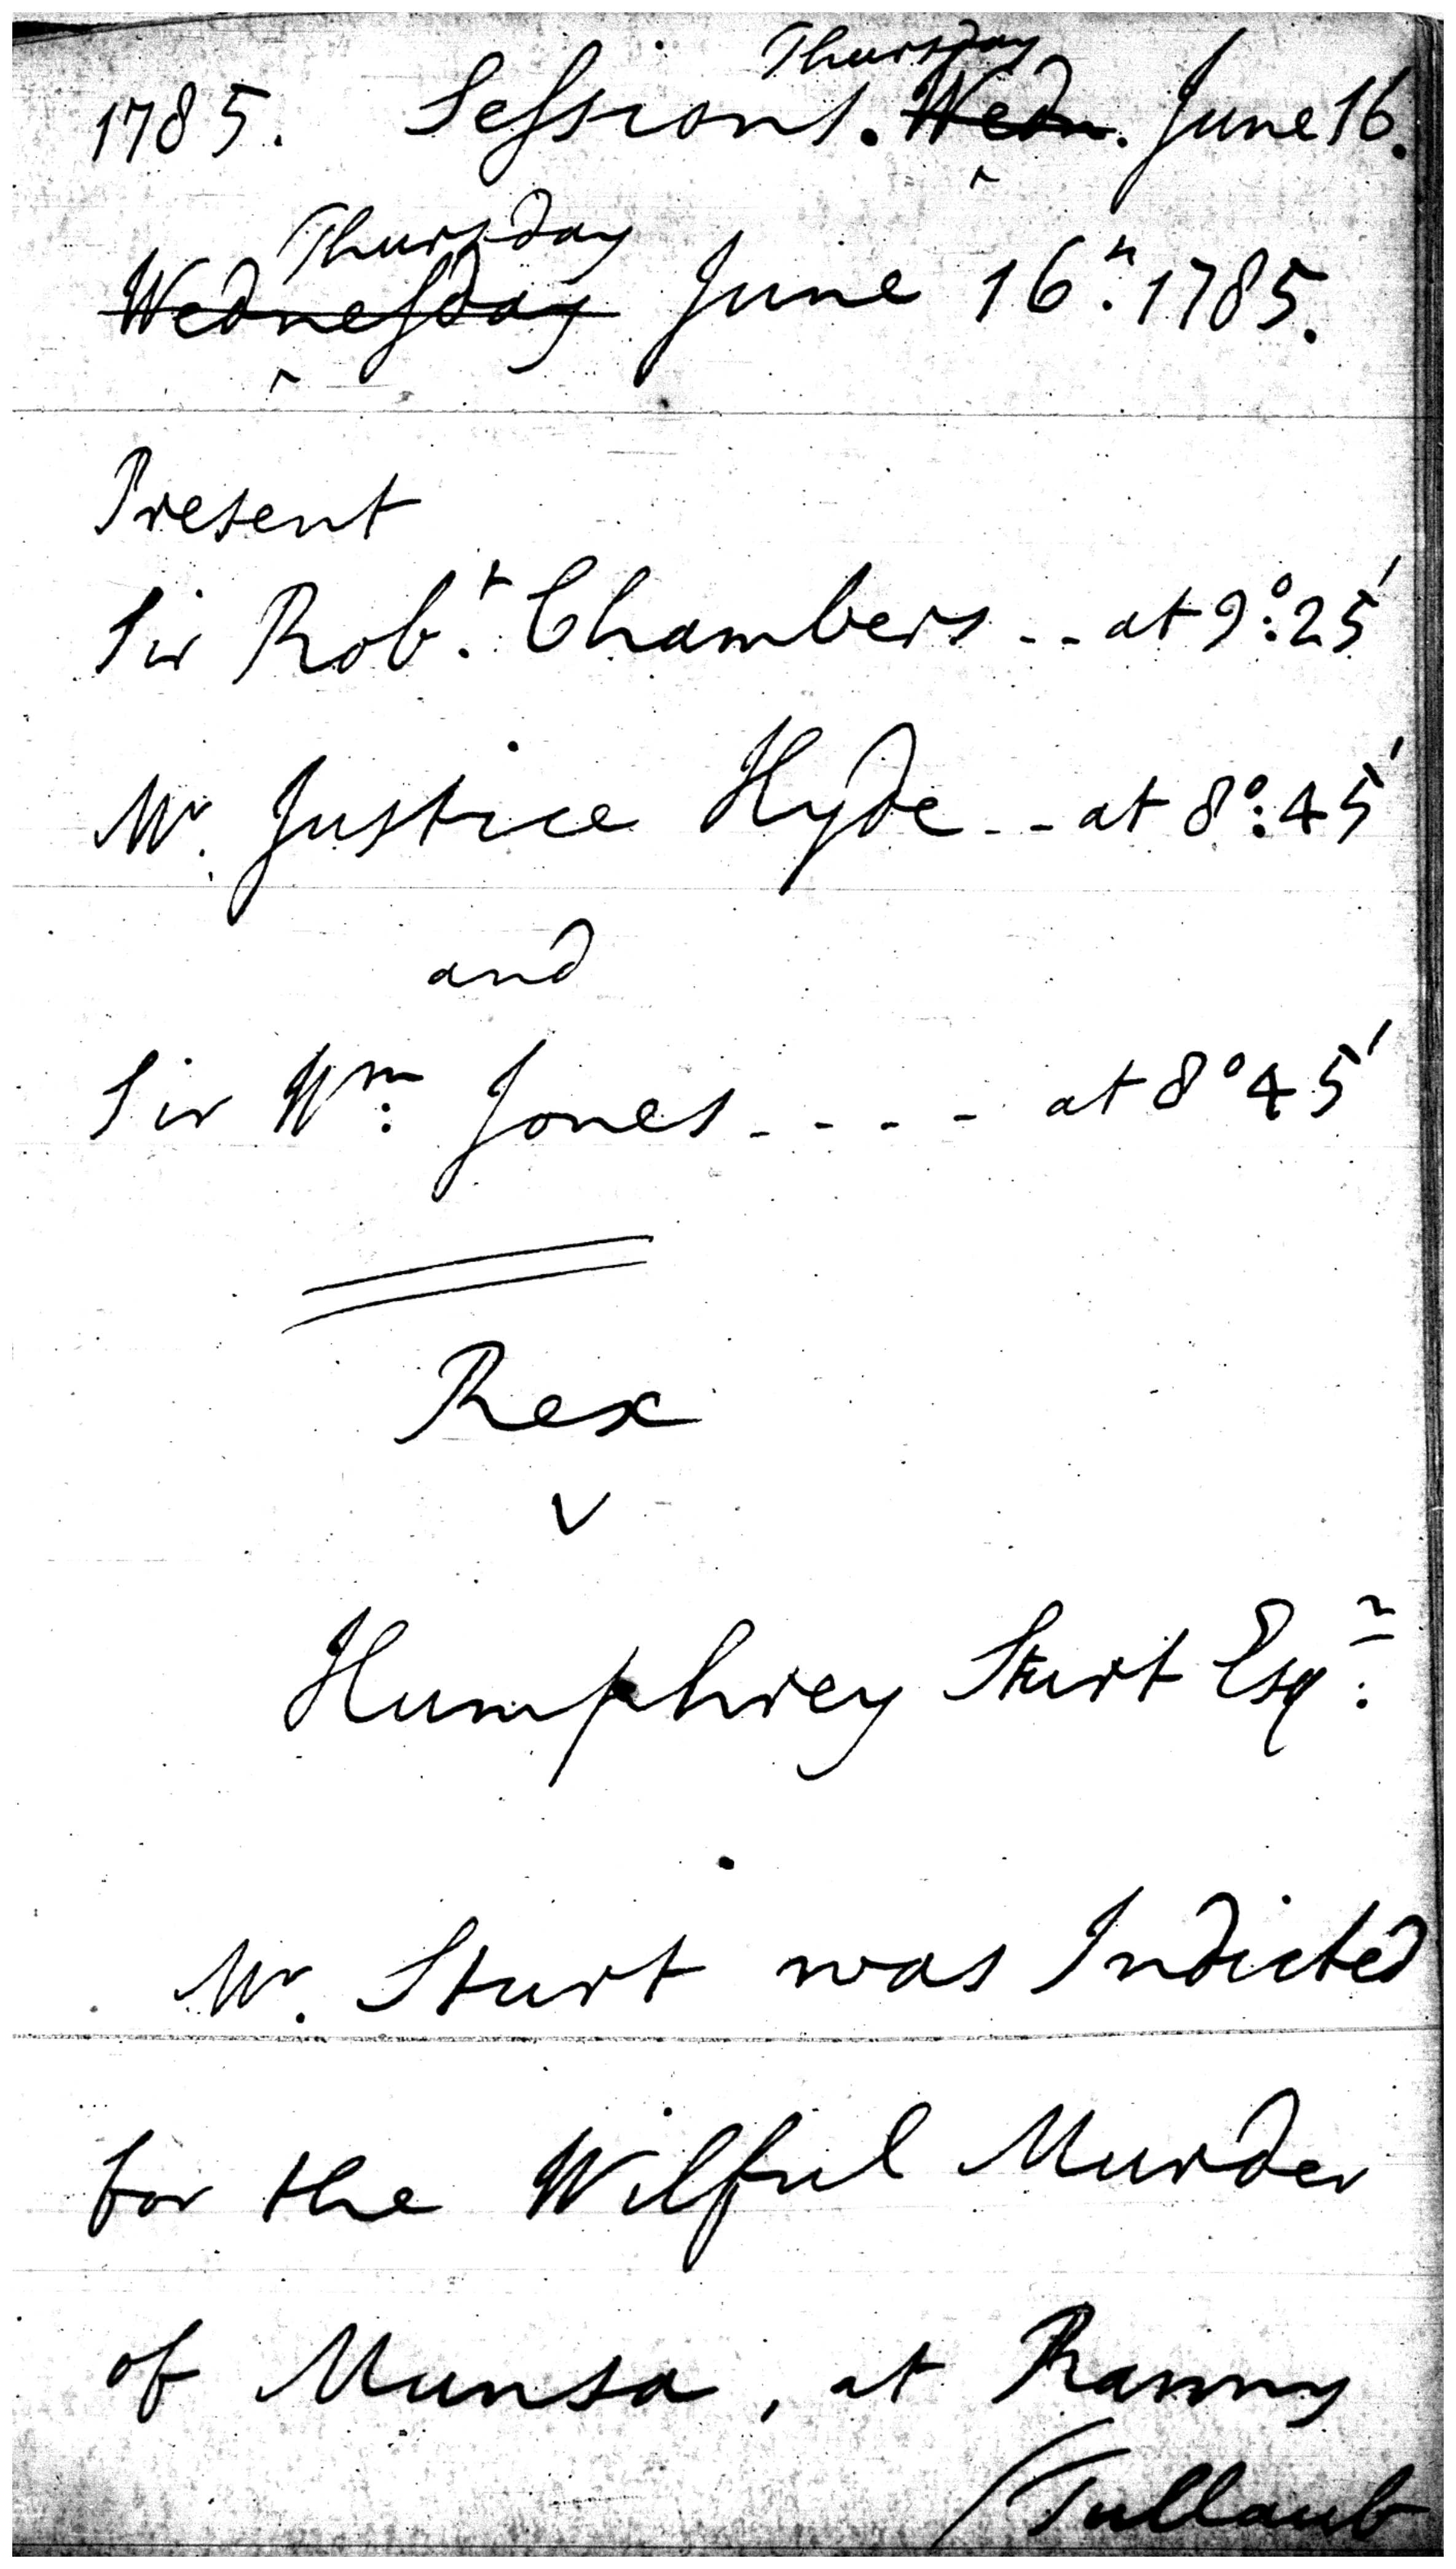 1785. Sessions. Thursday ~~Wedn.~~ June 16.
Thursday
~~Wednesday~~ June 16th. 1785.
Present
Sir Robt. Chambers -- at 9°:25'
Mr. Justice Hyde -- at 8°:45'
and
Sir Wm: Jones - - - - at 8°45'
Rex
v
Humphrey Sturt Esqr:
Mr. Sturt was Indicted
for the Wilful Murder
of Munsa, at Ranny
/Tullaub